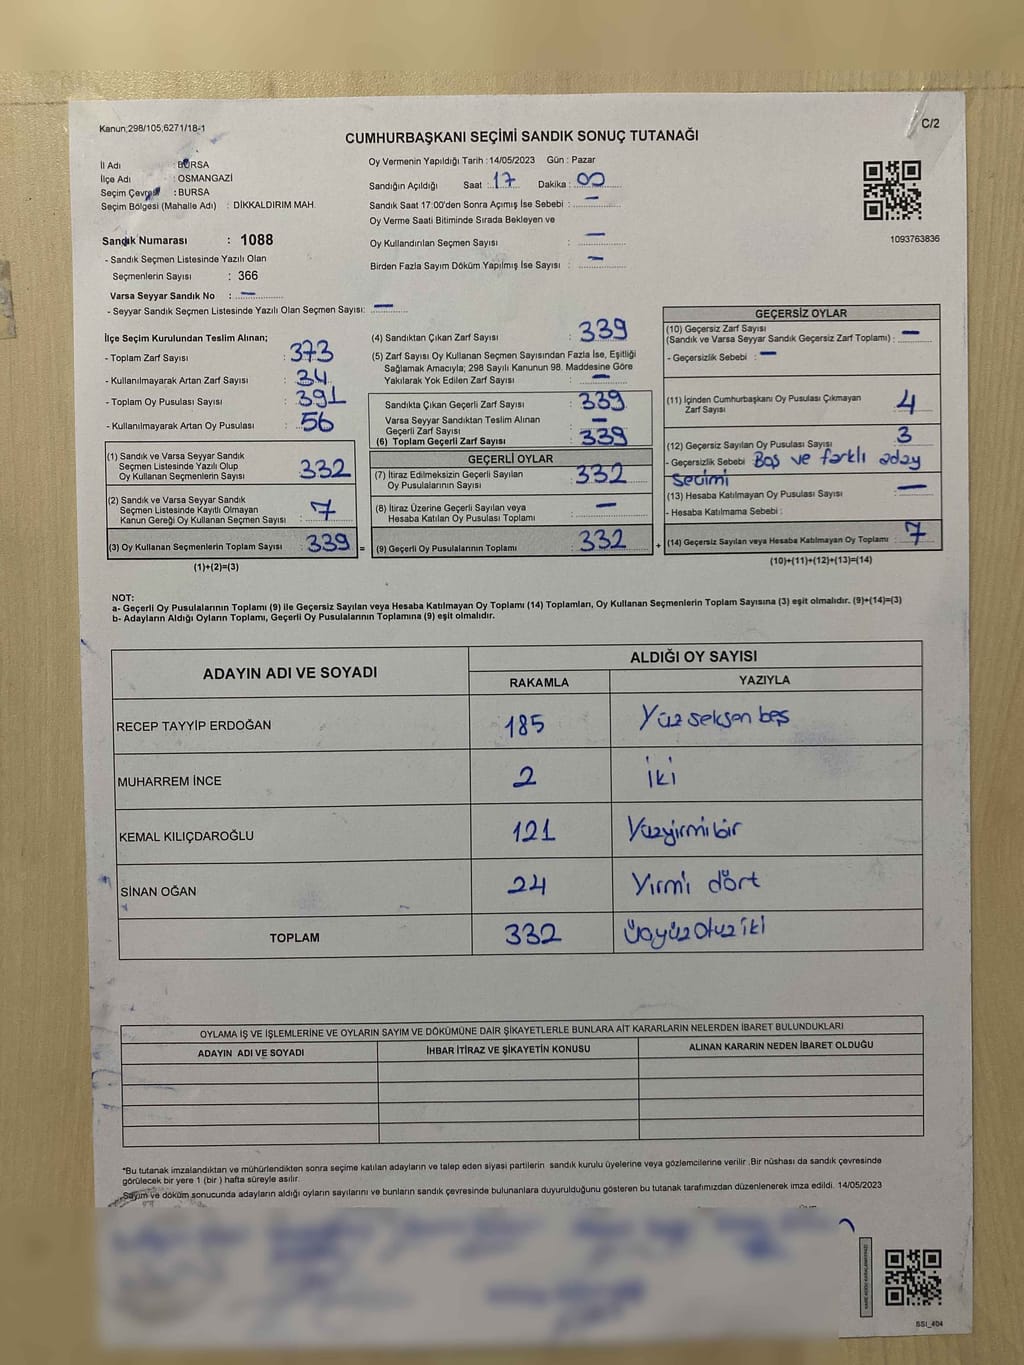 Kanun;298/105,6271/18-1
C/2
CUMHURBAŞKANI SEÇİMİ SANDIK SONUÇ TUTANAĞI
İl Adı : BURSA
İlçe Adı : OSMANGAZİ
Seçim Çevresi : BURSA
Seçim Bölgesi (Mahalle Adı) : DİKKALDIRIM MAH.
Oy Vermenin Yapıldığı Tarih : 14/05/2023 Gün : Pazar
Sandığın Açıldığı Saat : 17 Dakika : 00
Sandık Saat 17:00'den Sonra Açımış İse Sebebi : —
Oy Verme Saati Bitiminde Sırada Bekleyen ve
Oy Kullandırılan Seçmen Sayısı : —
Birden Fazla Sayım Döküm Yapılmış İse Sayısı : —
1093763836
Sandık Numarası : 1088
- Sandık Seçmen Listesinde Yazılı Olan
Seçmenlerin Sayısı : 366
Varsa Seyyar Sandık No : —
- Seyyar Sandık Seçmen Listesinde Yazılı Olan Seçmen Sayısı: —
İlçe Seçim Kurulundan Teslim Alınan;
- Toplam Zarf Sayısı : 373
- Kullanılmayarak Artan Zarf Sayısı : 34
- Toplam Oy Pusulası Sayısı : 391
- Kullanılmayarak Artan Oy Pusulası : 56
(1) Sandık ve Varsa Seyyar Sandık
Seçmen Listesinde Yazılı Olup
Oy Kullanan Seçmenlerin Sayısı : 332
(2) Sandık ve Varsa Seyyar Sandık
Seçmen Listesinde Kayıtlı Olmayan
Kanun Gereği Oy Kullanan Seçmen Sayısı : 7
(3) Oy Kullanan Seçmenlerin Toplam Sayısı : 339
(1)+(2)=(3)
(4) Sandıktan Çıkan Zarf Sayısı : 339
(5) Zarf Sayısı Oy Kullanan Seçmen Sayısından Fazla İse, Eşitliği
Sağlamak Amacıyla; 298 Sayılı Kanunun 98. Maddesine Göre
Yakılarak Yok Edilen Zarf Sayısı : —
Sandıkta Çıkan Geçerli Zarf Sayısı : 339
Varsa Seyyar Sandıktan Teslim Alınan
Geçerli Zarf Sayısı : —
(6) Toplam Geçerli Zarf Sayısı : 339
GEÇERLİ OYLAR
(7) İtiraz Edilmeksizin Geçerli Sayılan
Oy Pusulalarının Sayısı : 332
(8) İtiraz Üzerine Geçerli Sayılan veya
Hesaba Katılan Oy Pusulası Toplamı : —
= (9) Geçerli Oy Pusulalarının Toplamı : 332
GEÇERSİZ OYLAR
(10) Geçersiz Zarf Sayısı
(Sandık ve Varsa Seyyar Sandık Geçersiz Zarf Toplamı) : —
- Geçersizlik Sebebi : —
(11) İçinden Cumhurbaşkanı Oy Pusulası Çıkmayan
Zarf Sayısı : 4
(12) Geçersiz Sayılan Oy Pusulası Sayısı : 3
- Geçersizlik Sebebi Boş ve farklı aday
seçimi
(13) Hesaba Katılmayan Oy Pusulası Sayısı : —
- Hesaba Katılmama Sebebi :
+ (14) Geçersiz Sayılan veya Hesaba Katılmayan Oy Toplamı : 7
(10)+(11)+(12)+(13)=(14)
NOT:
a- Geçerli Oy Pusulalarının Toplamı (9) ile Geçersiz Sayılan veya Hesaba Katılmayan Oy Toplamı (14) Toplamları, Oy Kullanan Seçmenlerin Toplam Sayısına (3) eşit olmalıdır. (9)+(14)=(3)
b- Adayların Aldığı Oyların Toplamı, Geçerli Oy Pusulalarının Toplamına (9) eşit olmalıdır.
ADAYIN ADI VE SOYADI
ALDIĞI OY SAYISI
RAKAMLA YAZIYLA
RECEP TAYYİP ERDOĞAN 185 Yüzseksenbeş
MUHARREM İNCE 2 iki
KEMAL KILIÇDAROĞLU 121 Yüzyirmibir
SİNAN OĞAN 24 Yirmi dört
TOPLAM 332 Üçyüzotuziki
OYLAMA İŞ VE İŞLEMLERİNE VE OYLARIN SAYIM VE DÖKÜMÜNE DAİR ŞİKAYETLERLE BUNLARA AİT KARARLARIN NELERDEN İBARET BULUNDUKLARI
ADAYIN ADI VE SOYADI İHBAR İTİRAZ VE ŞİKAYETİN KONUSU ALINAN KARARIN NEDEN İBARET OLDUĞU
*Bu tutanak imzalandıktan ve mühürlendikten sonra seçime katılan adayların ve talep eden siyasi partilerin sandık kurulu üyelerine veya gözlemcilerine verilir .Bir nüshası da sandık çevresinde
görülecek bir yere 1 (bir ) hafta süreyle asılır.
-Sayım ve döküm sonucunda adayların aldığı oyların sayılarını ve bunların sandık çevresinde bulunanlara duyurulduğunu gösteren bu tutanak tarafımızdan düzenlenerek imza edildi. 14/05/2023
SSI_404